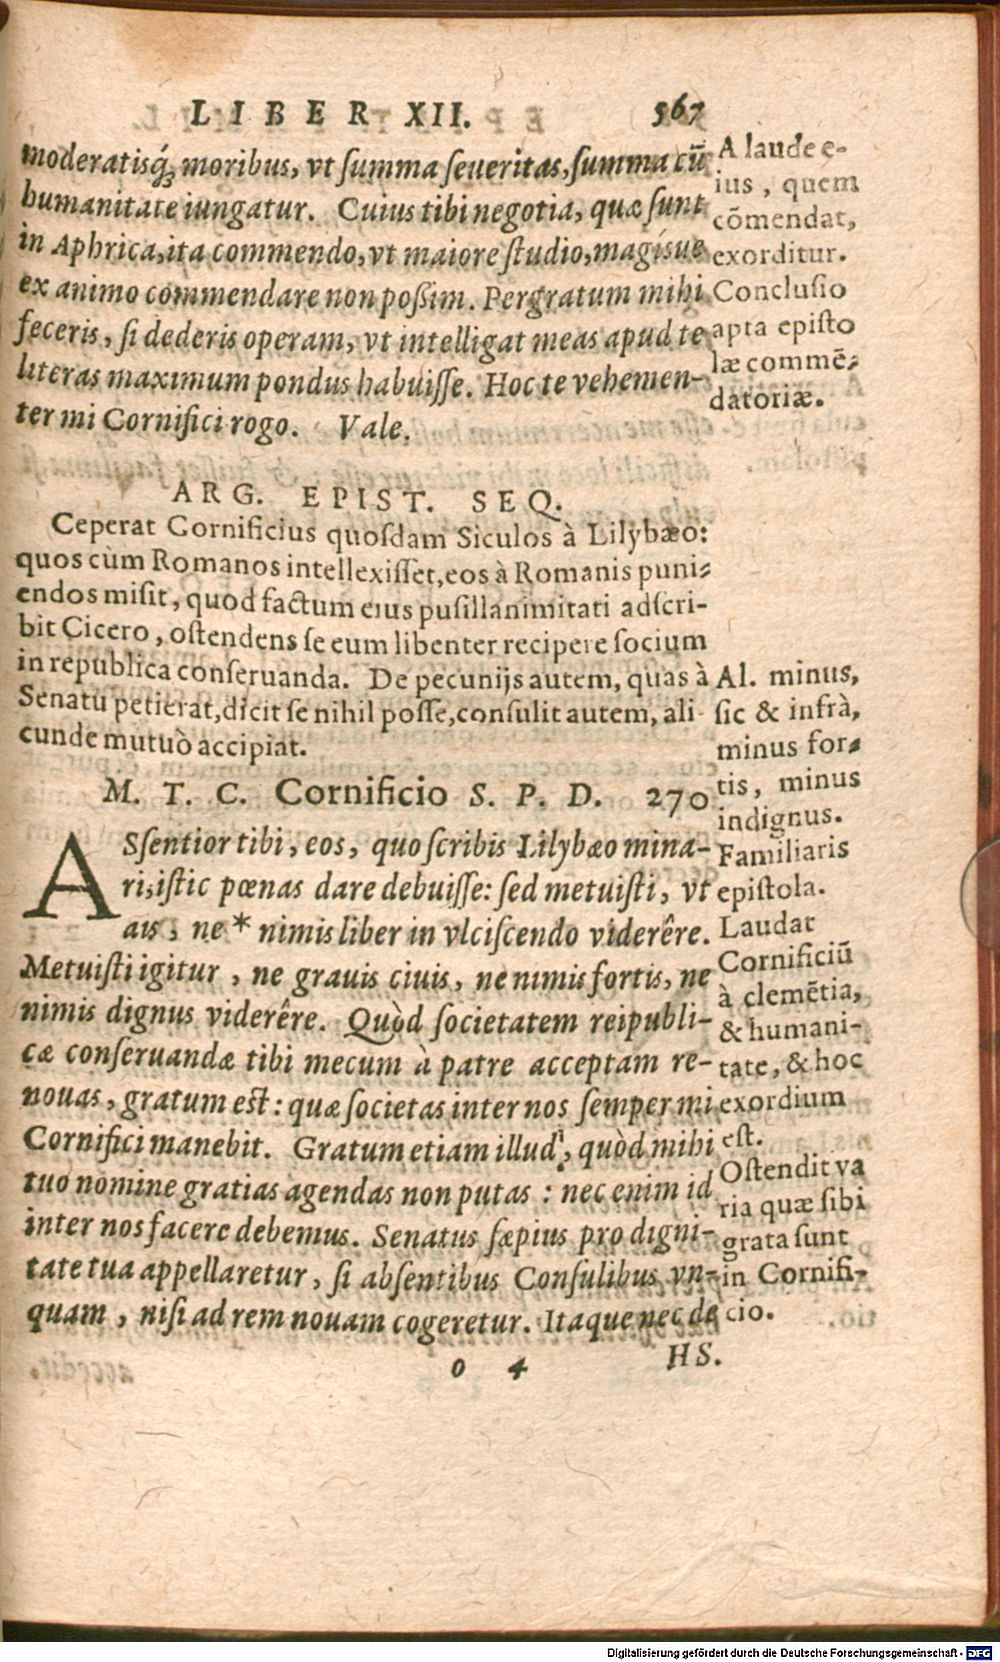 LIBER XII. 567
moderatisq́; moribus, vt ſumma ſeueritas, ſumma cũ
humanitate iungatur. Cuius tibi negotia, quæ ſunt
in Aphrica, ita commendo, vt maiore ſtudio, magísue
ex animo commendare non poßim. Pergratum mihi
feceris, ſi dederis operam, vt intelligat meas apud te
literas maximum pondus habuiſſe. Hoc te vehemen-
ter mi Cornifici rogo. Vale.
A laude e-
ius, quem
cõmendat,
exorditur.
Concluſio
apta epiſto
læ commē-
datoriæ.
ARG. EPIST. SEQ.
Ceperat Cornificius quoſdam Siculos à Lilybæo:
quos cùm Romanos intellexiſſet, eos à Romanis puni-
endos miſit, quod factum eius puſillanimitati adſcri-
bit Cicero, oſtendens ſe eum libenter recipere ſocium
in republica conſeruanda. De pecunijs autem, quas à
Senatu petierat, dicit ſe nihil poſſe, conſulit autem, ali
cunde mutuò accipiat.
M. T. C. Cornificio S. P. D. 270
ASſentior tibi, eos, quo ſcribis Lilybæo mina-
ri, iſtic pœnas dare debuiſſe: ſed metuiſti, vt
ais, ne * nimis liber in vlciſcendo viderêre.
Metuiſti igitur, ne grauis ciuis, ne nimis fortis, ne
nimis dignus viderêre. Quòd ſocietatem reipubli-
cæ conſeruandæ tibi mecum à patre acceptam re-
nouas, gratum est: quæ ſocietas inter nos ſemper mi
Cornifici manebit. Gratum etiam illud, quòd mihi
tuo nomine gratias agendas non putas: nec enim id
inter nos facere debemus. Senatus ſæpius pro digni-
tate tua appellaretur, ſi abſentibus Conſulibus vn-
quam, niſi ad rem nouam cogeretur. Itaque nec de
Al. minus,
ſic & infrà,
minus for-
tis, minus
indignus.
Familiaris
epiſtola.
Laudat
Cornificiũ
à clemẽtia,
& humani-
tate, & hoc
exordium
eſt.
Oſtendit va
ria quæ ſibi
grata ſunt
in Cornifi-
cio.
o 4 HS.
Digitalisierung gefördert durch die Deutsche Forschungsgemeinschaft - DFG